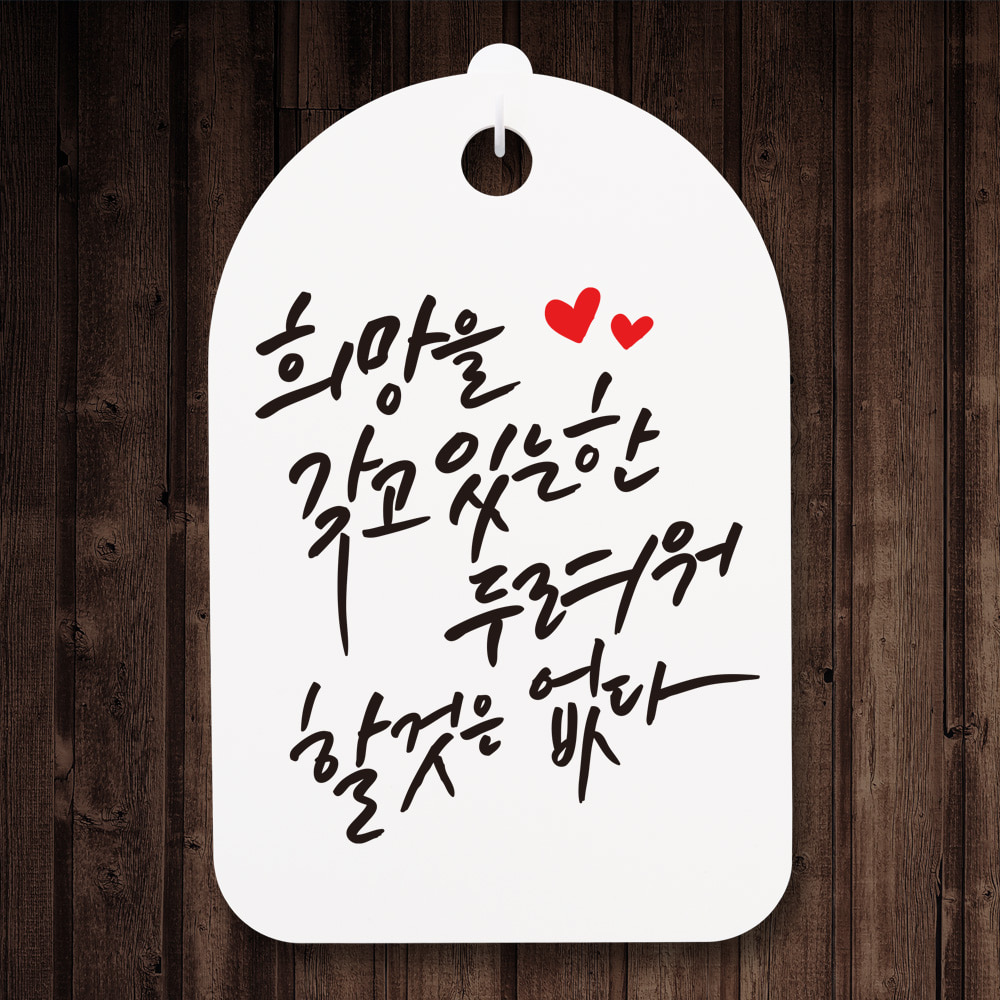 희망을
갖고 있는한
두려워
할것은 없다